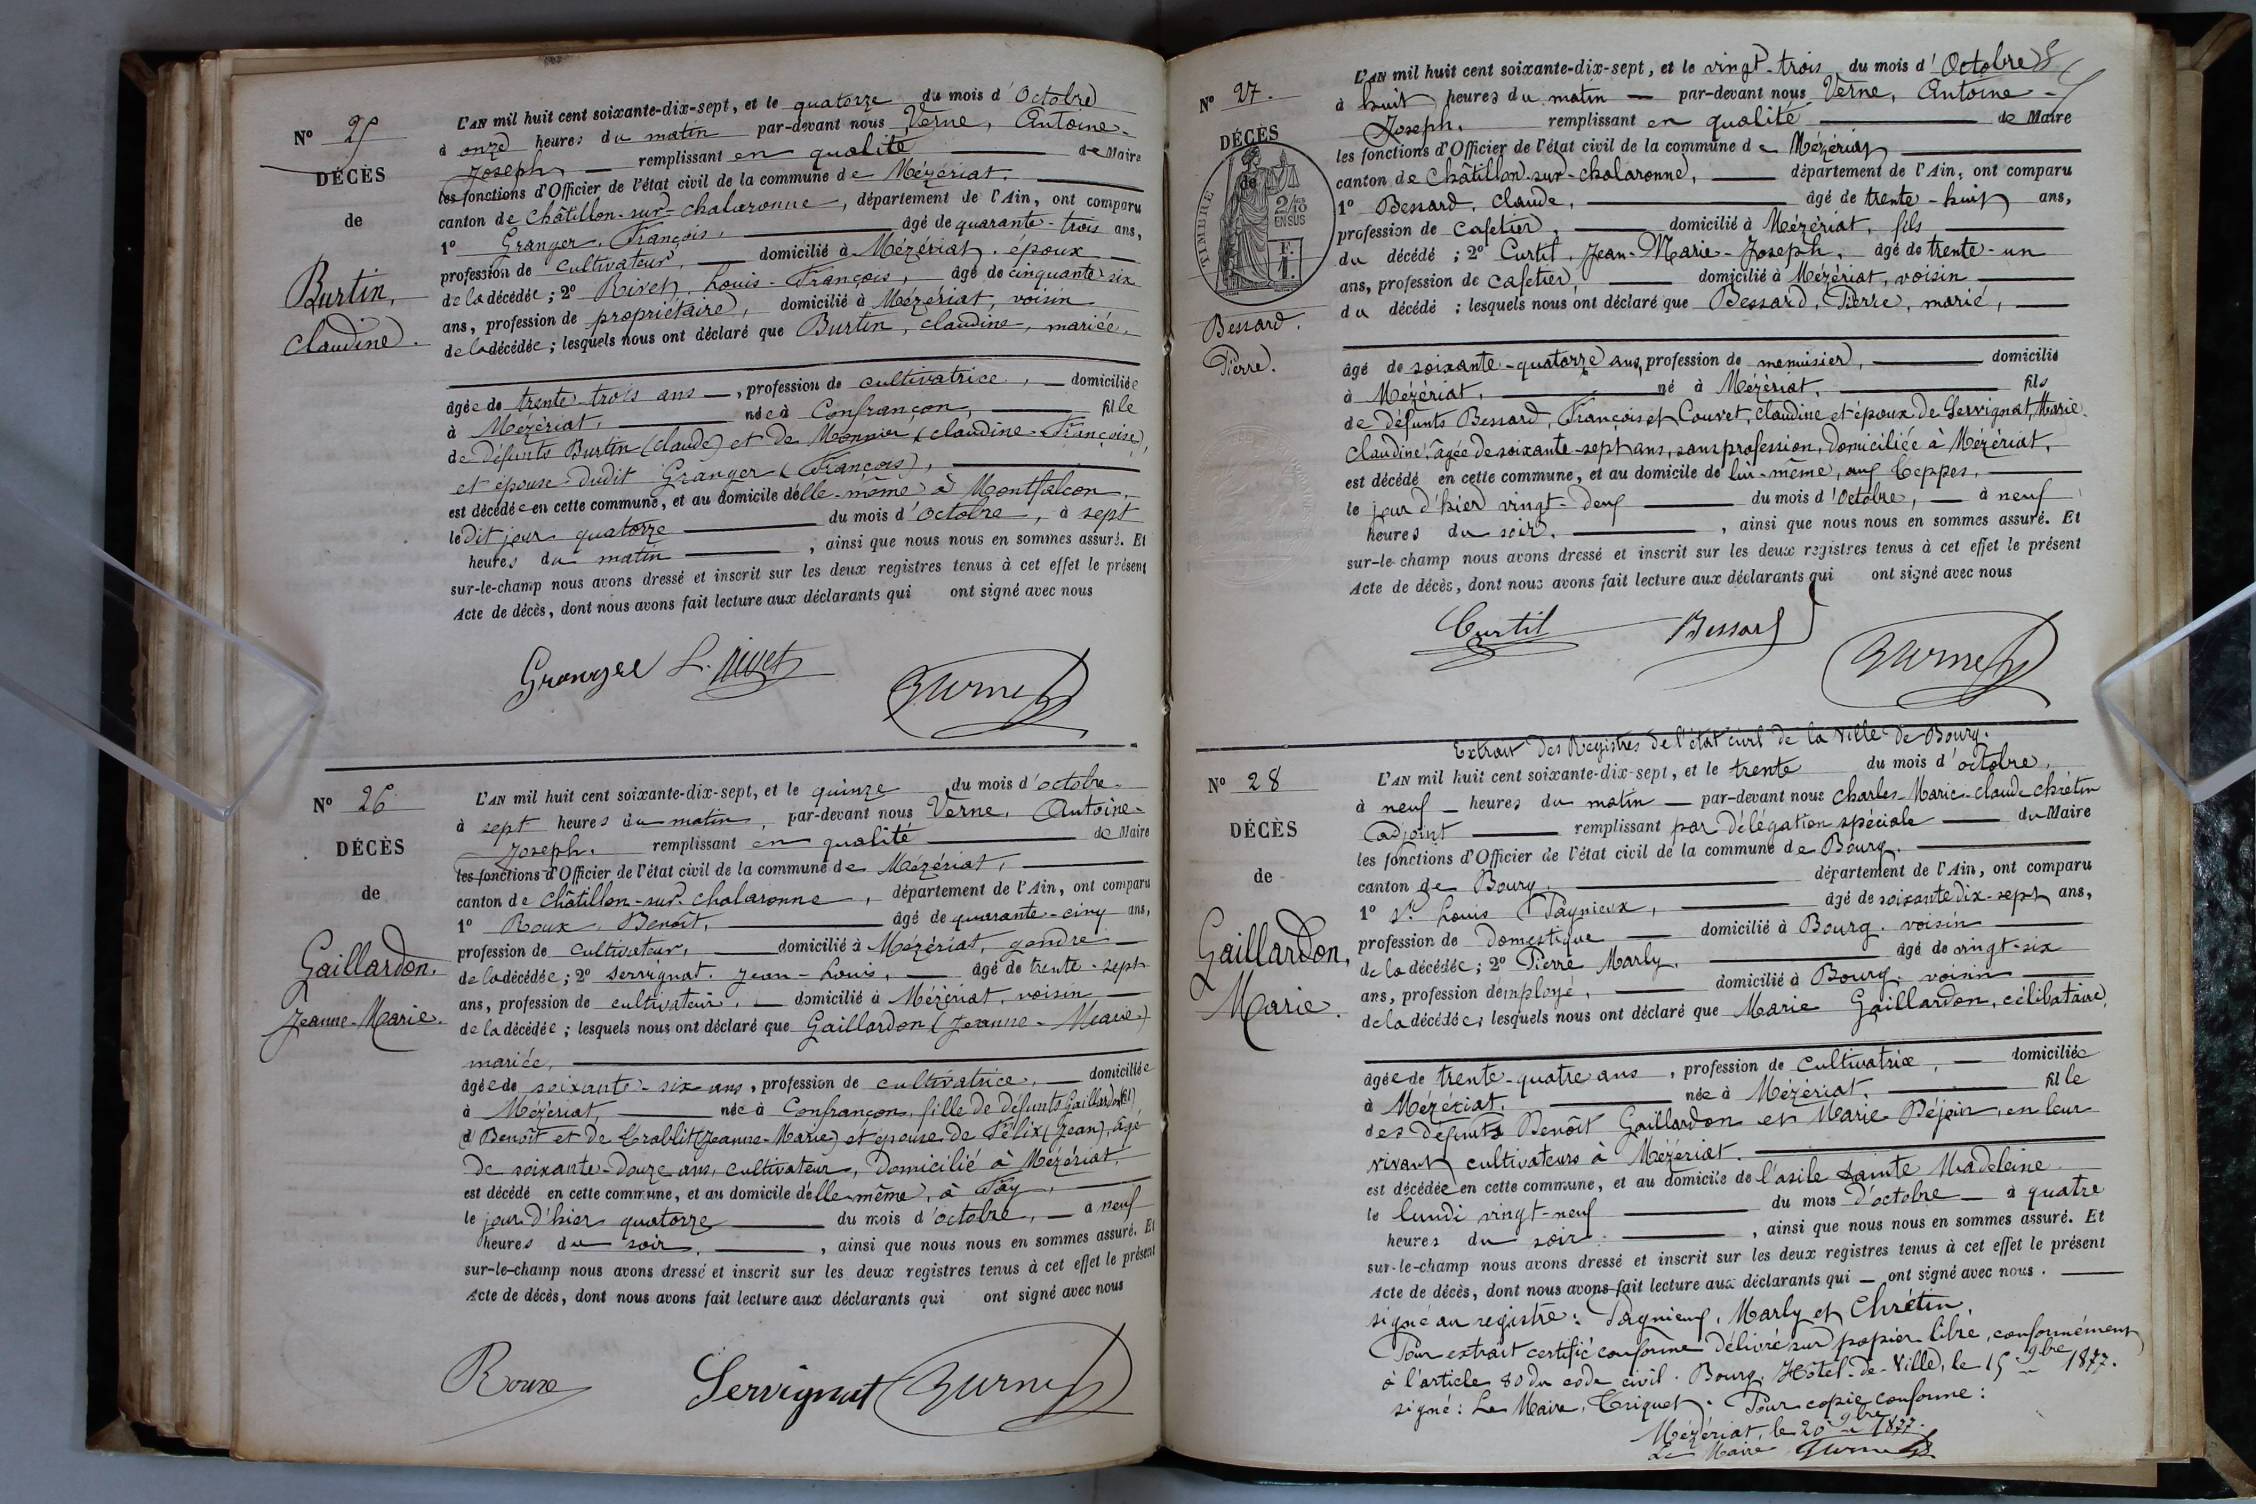 N° 25
DÉCÈS
de
Burtin,
Claudine.
L'AN mil huit cent soixante-dix-sept, et le quatorze du mois d'Octobre
à onze heures du matin par-devant nous Verne, Antoine-
Joseph, remplissant en qualité de Maire
les fonctions d'Officier de l'état civil de la commune de Mézériat,
canton de Châtillon-sur-Chalaronne, département de l'Ain, ont comparu
1° Granger, François, âgé de quarante-trois ans,
profession de cultivateur, domicilié à Mézériat, époux
de la décédée; 2° Rivet, Louis-François, âgé de cinquante six
ans, profession de propriétaire, domicilié à Mézériat, voisin
de la décédée; lesquels nous ont déclaré que Burtin, Claudine, mariée,
âgée de trente-trois ans, profession de cultivatrice, domiciliée
à Mézériat, née à Confrançon, fille
de défunts Burtin (Claude) et de Monnier (Claudine-Françoise),
et épouse dudit Granger (François),
est décédée en cette commune, et au domicile d'elle-même à Montfalcon,
le dit jour quatorze du mois d'octobre, à sept
heures du matin, ainsi que nous nous en sommes assuré. Et
sur-le-champ nous avons dressé et inscrit sur les deux registres tenus à cet effet le présent
Acte de décès, dont nous avons fait lecture aux déclarants qui ont signé avec nous
Granger L. Rivet JVerne
N° 26
DÉCÈS
de
Gaillardon,
Jeanne-Marie.
L'AN mil huit cent soixante-dix-sept, et le quinze du mois d'octobre
à sept heures du matin, par-devant nous Verne, Antoine-
Joseph, remplissant en qualité de Maire
les fonctions d'Officier de l'état civil de la commune de Mézériat,
canton de Châtillon-sur-Chalaronne, département de l'Ain, ont comparu
1° Roux, Benoît, âgé de quarante-cinq ans,
profession de cultivateur, domicilié à Mézériat, gendre
de la décédée; 2° Servignat, Jean-Louis, âgé de trente-sept
ans, profession de cultivateur, domicilié à Mézériat, voisin
de la décédée; lesquels nous ont déclaré que Gaillardon (Jeanne-Marie)
mariée,
âgée de soixante-six ans, profession de cultivatrice, domiciliée
à Mézériat, née à Confrançon, fille de défunts Gaillardon
Benoît et de Crablit (Jeanne-Marie) et épouse de Félix (Jean), âgé
de soixante-douze ans, cultivateur, domicilié à Mézériat,
est décédé en cette commune, et au domicile d'elle-même, à Fay,
le jour d'hier quatorze du mois d'octobre, à neuf
heures du soir, ainsi que nous nous en sommes assuré. Et
sur-le-champ nous avons dressé et inscrit sur les deux registres tenus à cet effet le présent
Acte de décès, dont nous avons fait lecture aux déclarants qui ont signé avec nous
Roux Servignat JVerne
N° 27.
DÉCÈS
de
TIMBRE
2/10 EN SUS
Bessard.
Pierre.
L'AN mil huit cent soixante-dix-sept, et le vingt-trois du mois d'Octobre
à huit heures du matin par-devant nous Verne, Antoine-
Joseph, remplissant en qualité de Maire
les fonctions d'Officier de l'état civil de la commune de Mézériat
canton de Châtillon-sur-Chalaronne, département de l'Ain, ont comparu
1° Bessard, Claude, âgé de trente-huit ans,
profession de cafetier, domicilié à Mézériat, fils
du décédé; 2° Curtil, Jean-Marie-Joseph, âgé de trente-un
ans, profession de cafetier, domicilié à Mézériat, voisin
du décédé; lesquels nous ont déclaré que Bessard, Pierre, marié,
âgé de soixante-quatorze ans, profession de menuisier, domicilié
à Mézériat, né à Mézériat, fils
de défunts Bessard, François et Couvet, Claudine et époux de Servignat, Marie-
Claudine, âgée de soixante-sept ans, sans profession, domiciliée à Mézériat,
est décédé en cette commune, et au domicile de lui-même, aux Ceppes,
le jour d'hier vingt-deux du mois d'Octobre, à neuf
heures du soir, ainsi que nous nous en sommes assuré. Et
sur-le-champ nous avons dressé et inscrit sur les deux registres tenus à cet effet le présent
Acte de décès, dont nous avons fait lecture aux déclarants qui ont signé avec nous
Curtil Bessard JVerne
Extrait des Registres de l'état civil de la Ville de Bourg.
N° 28
DÉCÈS
de
Gaillardon,
Marie.
L'AN mil huit cent soixante-dix-sept, et le trente du mois d'octobre,
à neuf heures du matin par-devant nous Charles-Marie-Claude Chrétin
adjoint remplissant par délégation spéciale du Maire
les fonctions d'Officier de l'état civil de la commune de Bourg.
canton de Bourg, département de l'Ain, ont comparu
1° Sr Louis Pagnieux, âgé de soixante dix-sept ans,
profession de Domestique domicilié à Bourg. voisin
de la décédée; 2° Pierre Marly, âgé de vingt-six
ans, profession d'employé, domicilié à Bourg, voisin
de la décédée; lesquels nous ont déclaré que Marie Gaillardon, célibataire,
âgée de trente-quatre ans, profession de cultivatrice, domiciliée
à Mézériat, née à Mézériat, fille
des défunts Benoît Gaillardon et Marie Péjoin, en leur
vivant cultivateurs à Mézériat.
est décédée en cette commune, et au domicile de l'asile Sainte Madeleine
le lundi vingt-neuf du mois d'octobre à quatre
heures du soir, ainsi que nous nous en sommes assuré. Et
sur-le-champ nous avons dressé et inscrit sur les deux registres tenus à cet effet le présent
Acte de décès, dont nous avons fait lecture aux déclarants qui ont signé avec nous.
signé au registre: Pagnieux, Marly et Chrétin,
Pour extrait certifié conforme délivré sur papier libre, conformément
à l'article 80 du code civil. Bourg, Hôtel-de-Ville, le 15 9bre 1877.
signé: Le Maire, Criquet. Pour copie conforme:
Mézériat, le 20 9bre 1877.
Le Maire JVerne